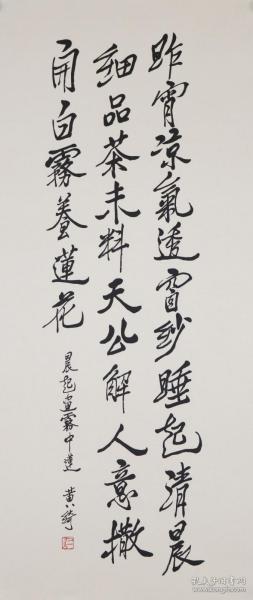 昨宵涼氣透窗紗睡起清晨
細品茶未料天公解人意撒
開白霧養蓮花
晨起畫霧中蓮 黄绮